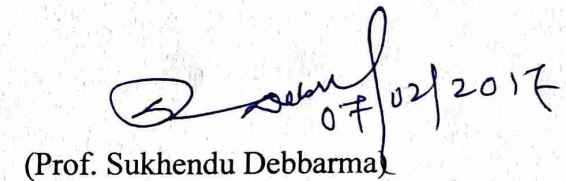 07/02/2017
(Prof. Sukhendu Debbarma)